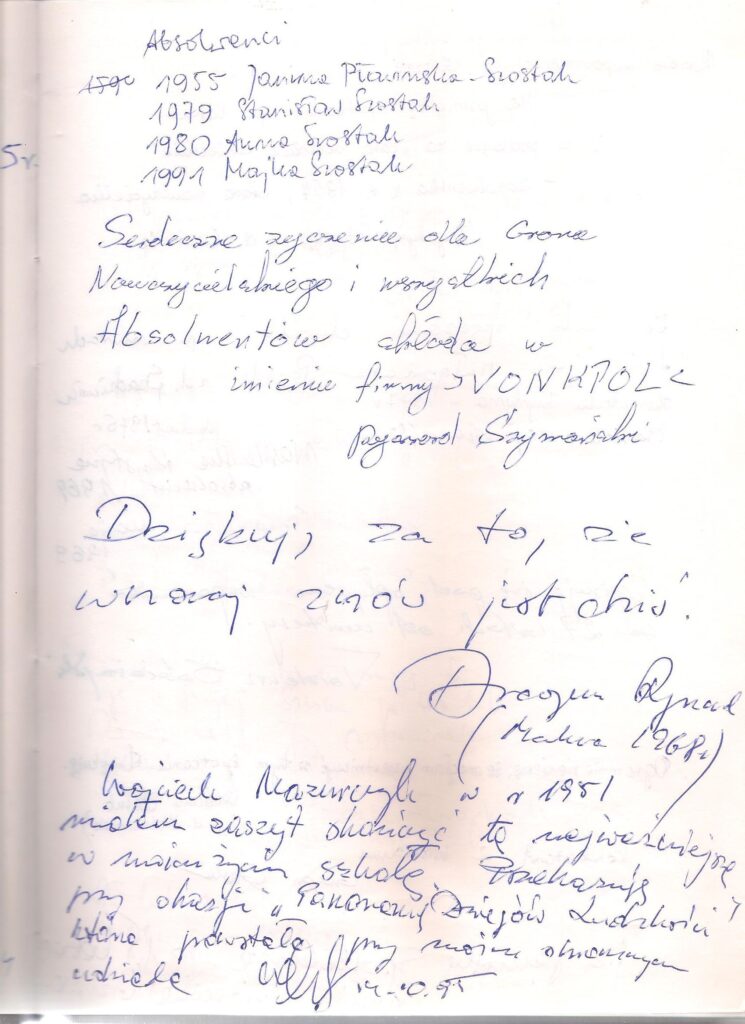 Absolwenci
1955 Janina Szostak
1979 Stanisław Szostak
1980 Anna Szostak
1991 Majka Szostak
5 r.
Serdeczne życzenie dla Grona
Nauczycielskiego i wszystkich
Absolwentów składa w
imieniu firmy >VONKPOL<
Ryszard Szymański
Dziękuję za to, że
wczoraj znów jest dziś.
(Matura 1968 r)
Wojciech Mazurczyk w r 1951
miałem zaszyt skończyć tę najważniejszą
w moim życiu szkołę. Przekazuję
przy okazji „Panoramę Dziejów Ludzkości"
która powstała przy moim
udziale 14.10.95